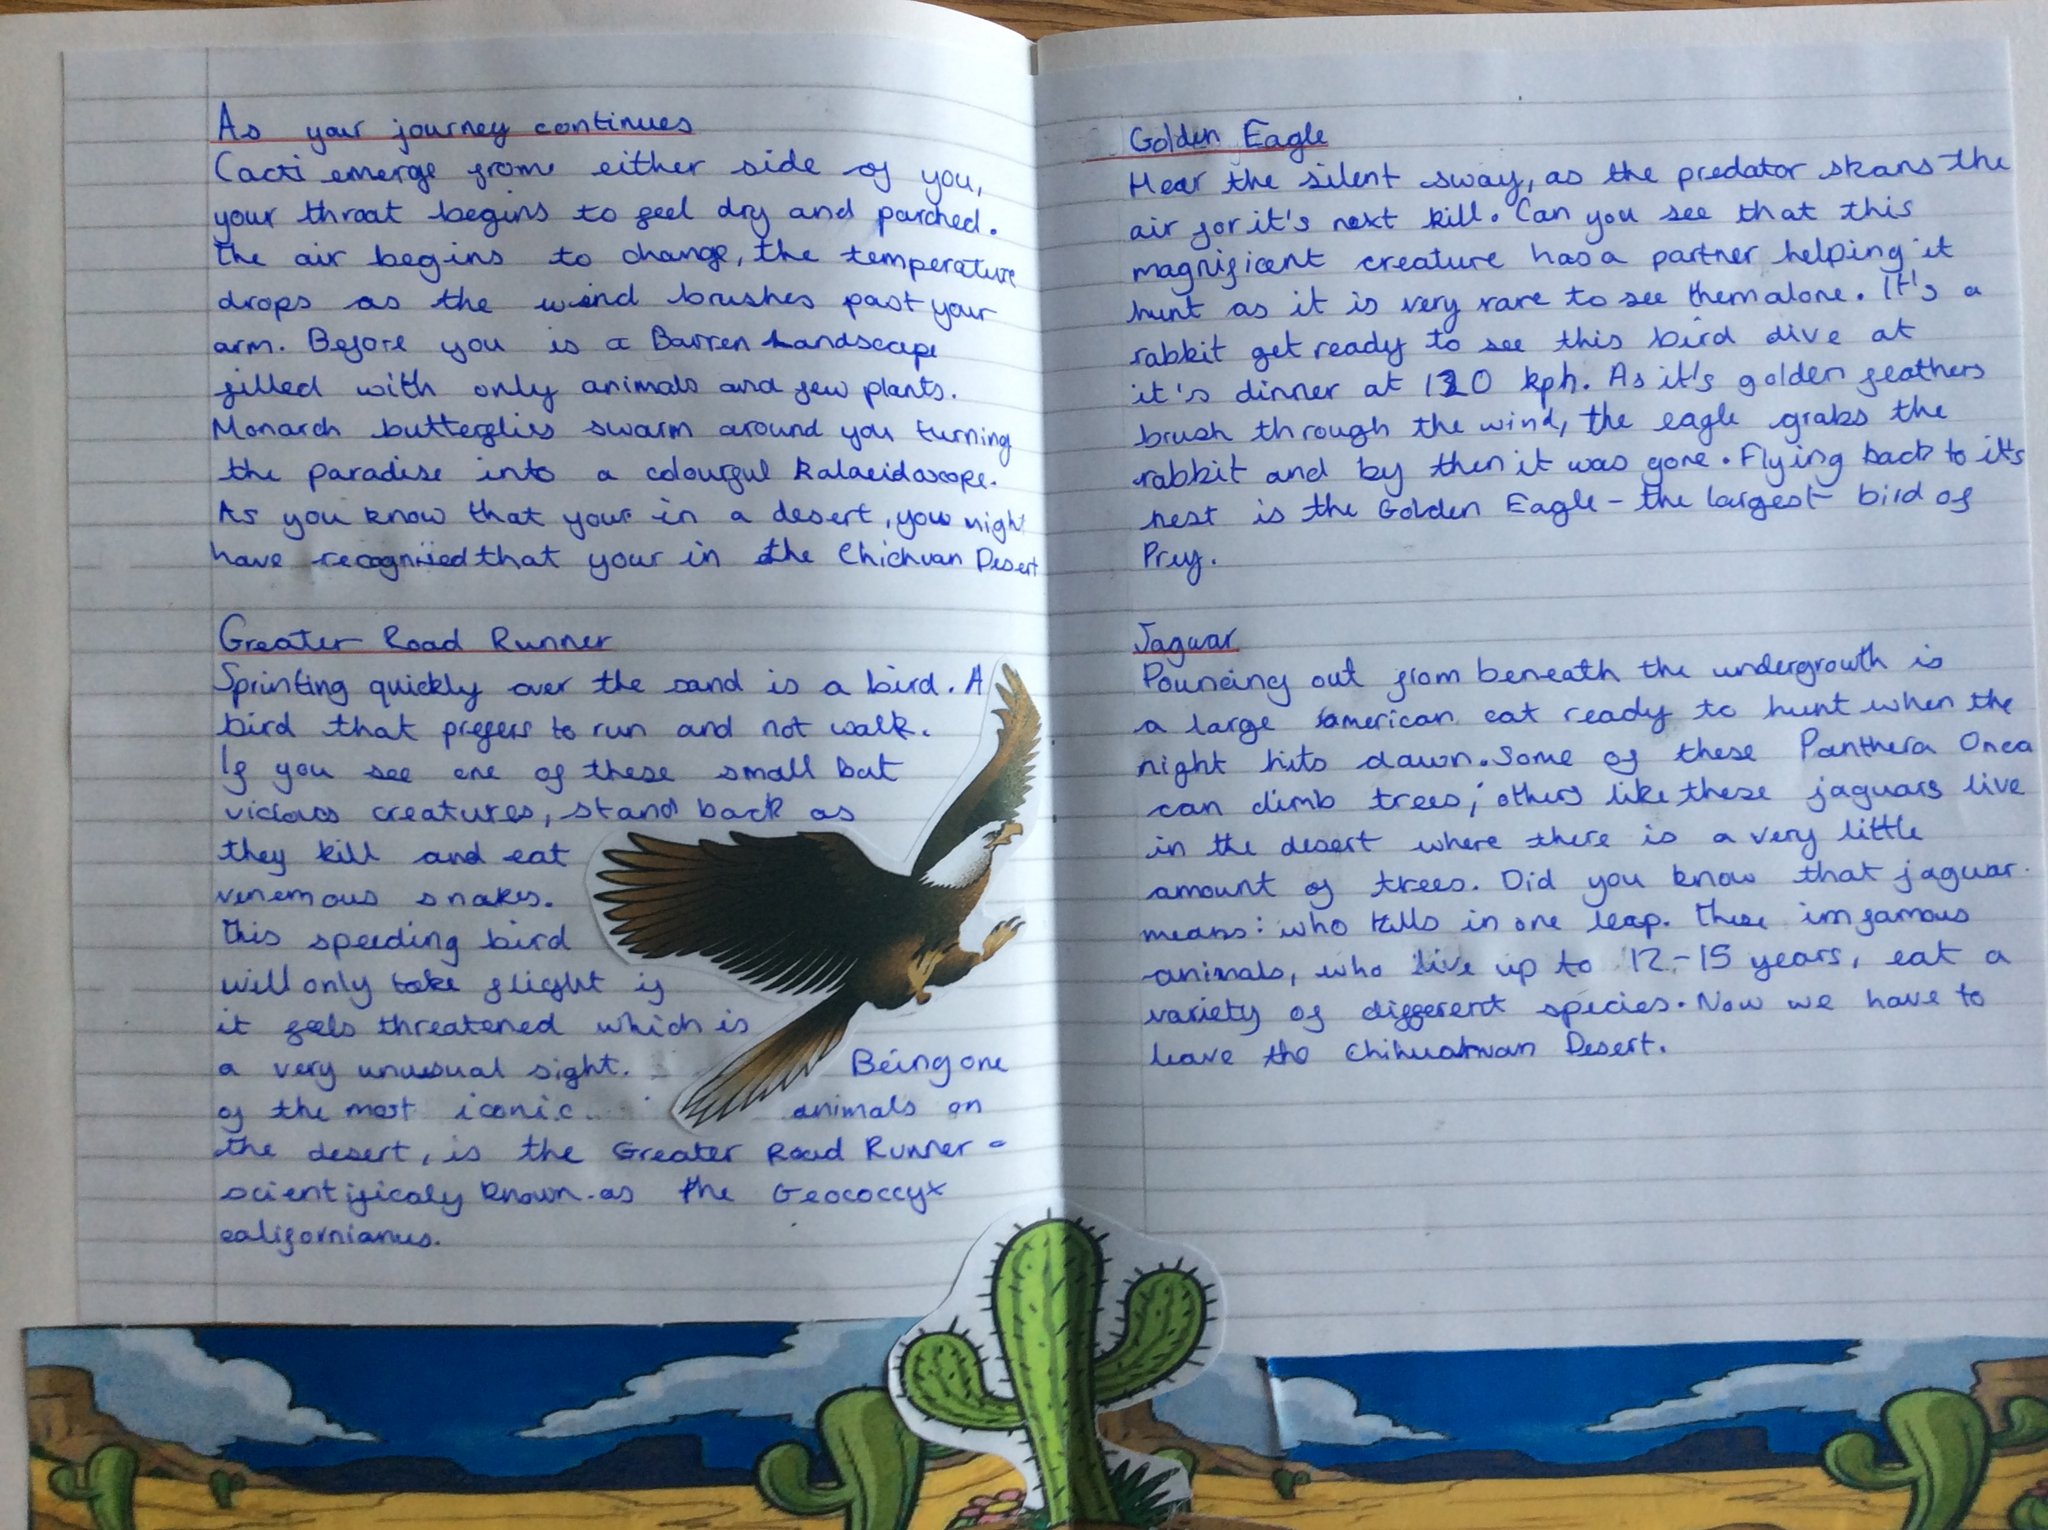 As your journey continues
Cacti emerge frome either side of you,
your throat begins to feel dry and parched.
The air begins to change, the temperature
drops as the wind brushes past your
arm. Before you is a Barren Landscape
filled with only animals and few plants.
Monarch butterflies swarm around you turning
the paradise into a colourful kalaeidoscope.
As you know that your in a desert, you might
have recogniied that your in the Chichuan Desert
Greater Road Runner
Sprinting quickly over the sand is a bird. A
bird that prefers to run and not walk.
If you see one of these small but
vicious creatures, stand back as
they kill and eat
venemous snakes.
This speeding bird
will only take flight if
it feels threatened which is
a very unusual sight. Being one
of the most iconic animals on
the desert, is the Greater Road Runner -
scientificaly known as the Geococcyx
californianus.
Golden Eagle
Hear the silent sway, as the predator skans the
air for it's next kill. Can you see that this
magnificent creature has a partner helping it
hunt as it is very rare to see them alone. It's a
rabbit get ready to see this bird dive at
it's dinner at 120 kph. As it's golden feathers
brush through the wind, the eagle grabs the
rabbit and by then it was gone. Flying back to it's
nest is the Golden Eagle - the largest bird of
Prey.
Jaguar
Pouncing out from beneath the undergrowth is
a large american cat ready to hunt when the
night hits dawn. Some of these Panthera Onca
can climb trees; others like these jaguars live
in the desert where there is a very little
amount of trees. Did you know that jaguar
means: who kills in one leap. These imfamous
animals, who live up to 12-15 years, eat a
variety of different species. Now we have to
leave the Chihuahuan Desert.